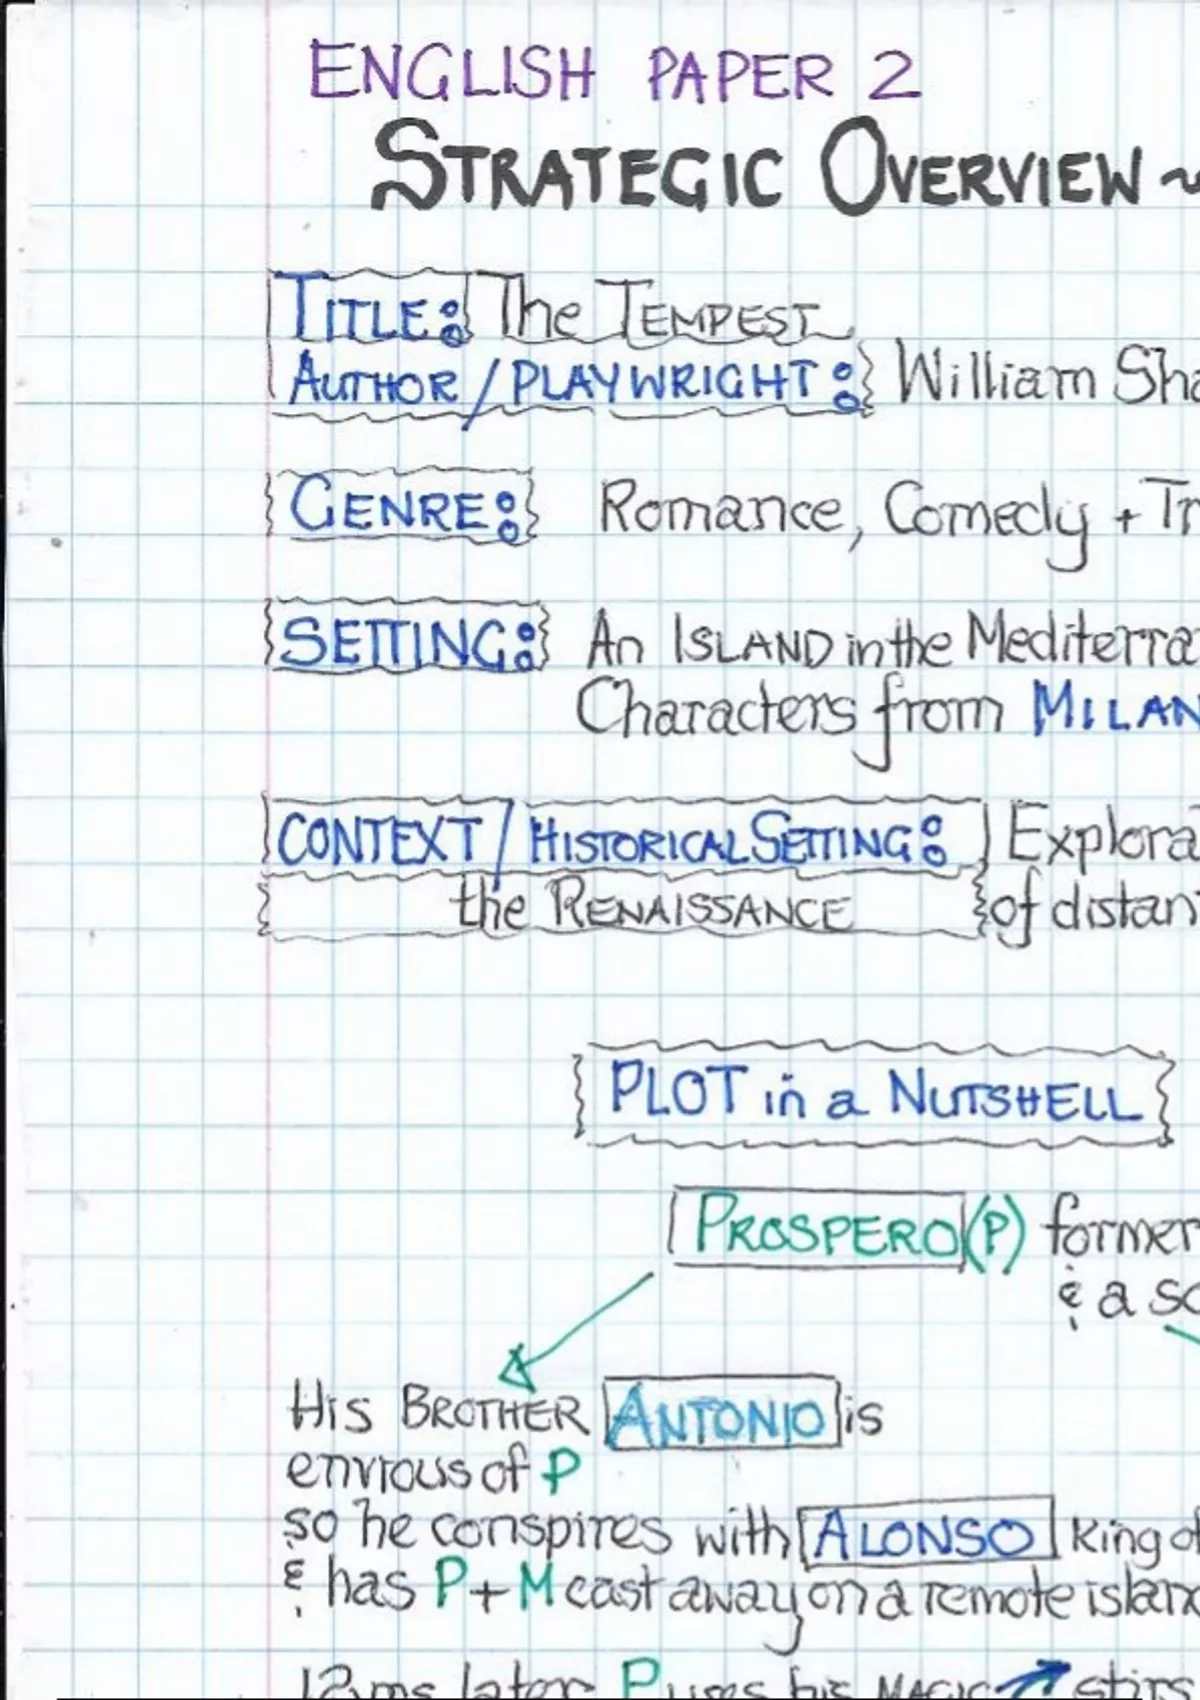 ENGLISH PAPER 2
STRATEGIC OVERVIEW ~
TITLE: The TEMPEST
AUTHOR / PLAYWRIGHT: William Sha
GENRE: Romance, Comedy + Tr
SETTING: An ISLAND in the Mediterra
Characters from MILAN
CONTEXT / HISTORICAL SETTING: Explora
the RENAISSANCE of distan
PLOT in a NUTSHELL
PROSPERO (P) former
& a so
His BROTHER ANTONIO is
envious of P
so he conspires with ALONSO King of
& has P + M cast away on a remote islan
12 yrs later P uses his MAGIC stirs